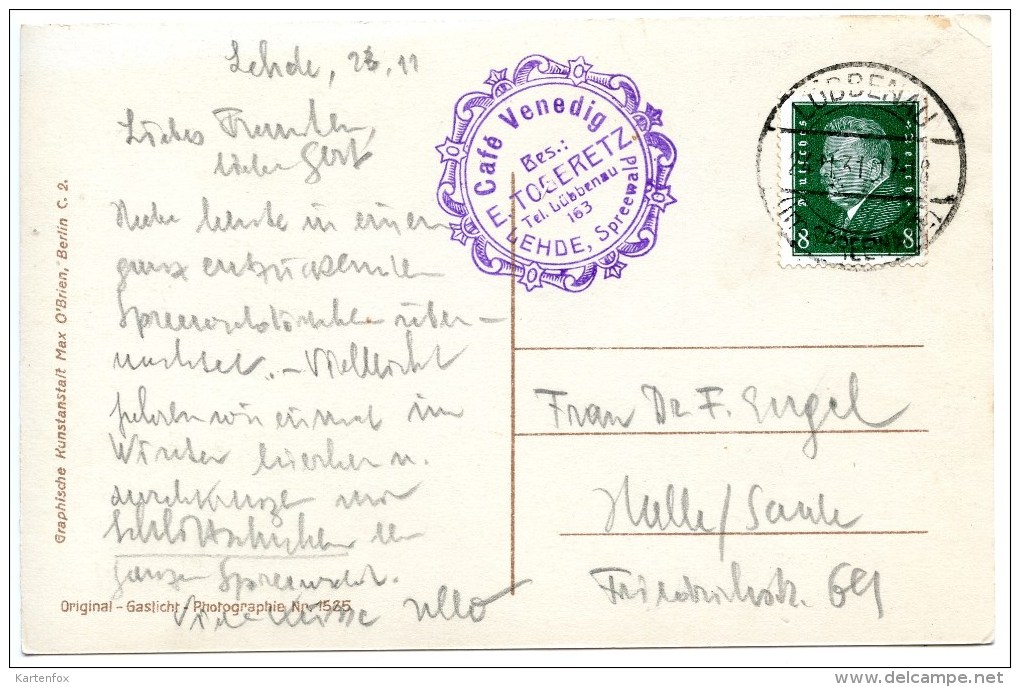 Lehde, 28. 11
Liebes
lieber Gert
Habe heute in einem
ganz entzückenden
über-
nachtet. – Vielleicht
fahren wir einmal im
Winter hierher u.
durchkreuzen mit
Schlittschuhen den
ganzen Spreewald.
Viele Küsse
Graphische Kunstanstalt Max O'Brien, Berlin C. 2.
Original - Gaslicht - Photographie Nr. 1525
Café Venedig
Bes.:
E. TOGERETZ
Tel. Lübbenau
163
LEHDE, Spreewald
LÜBBENAU
Deutsches Reich
8 8
Frau Dr. F. Engel
Halle/Saale
Friedrichstr. 69
Kartenfox
delcampe.net